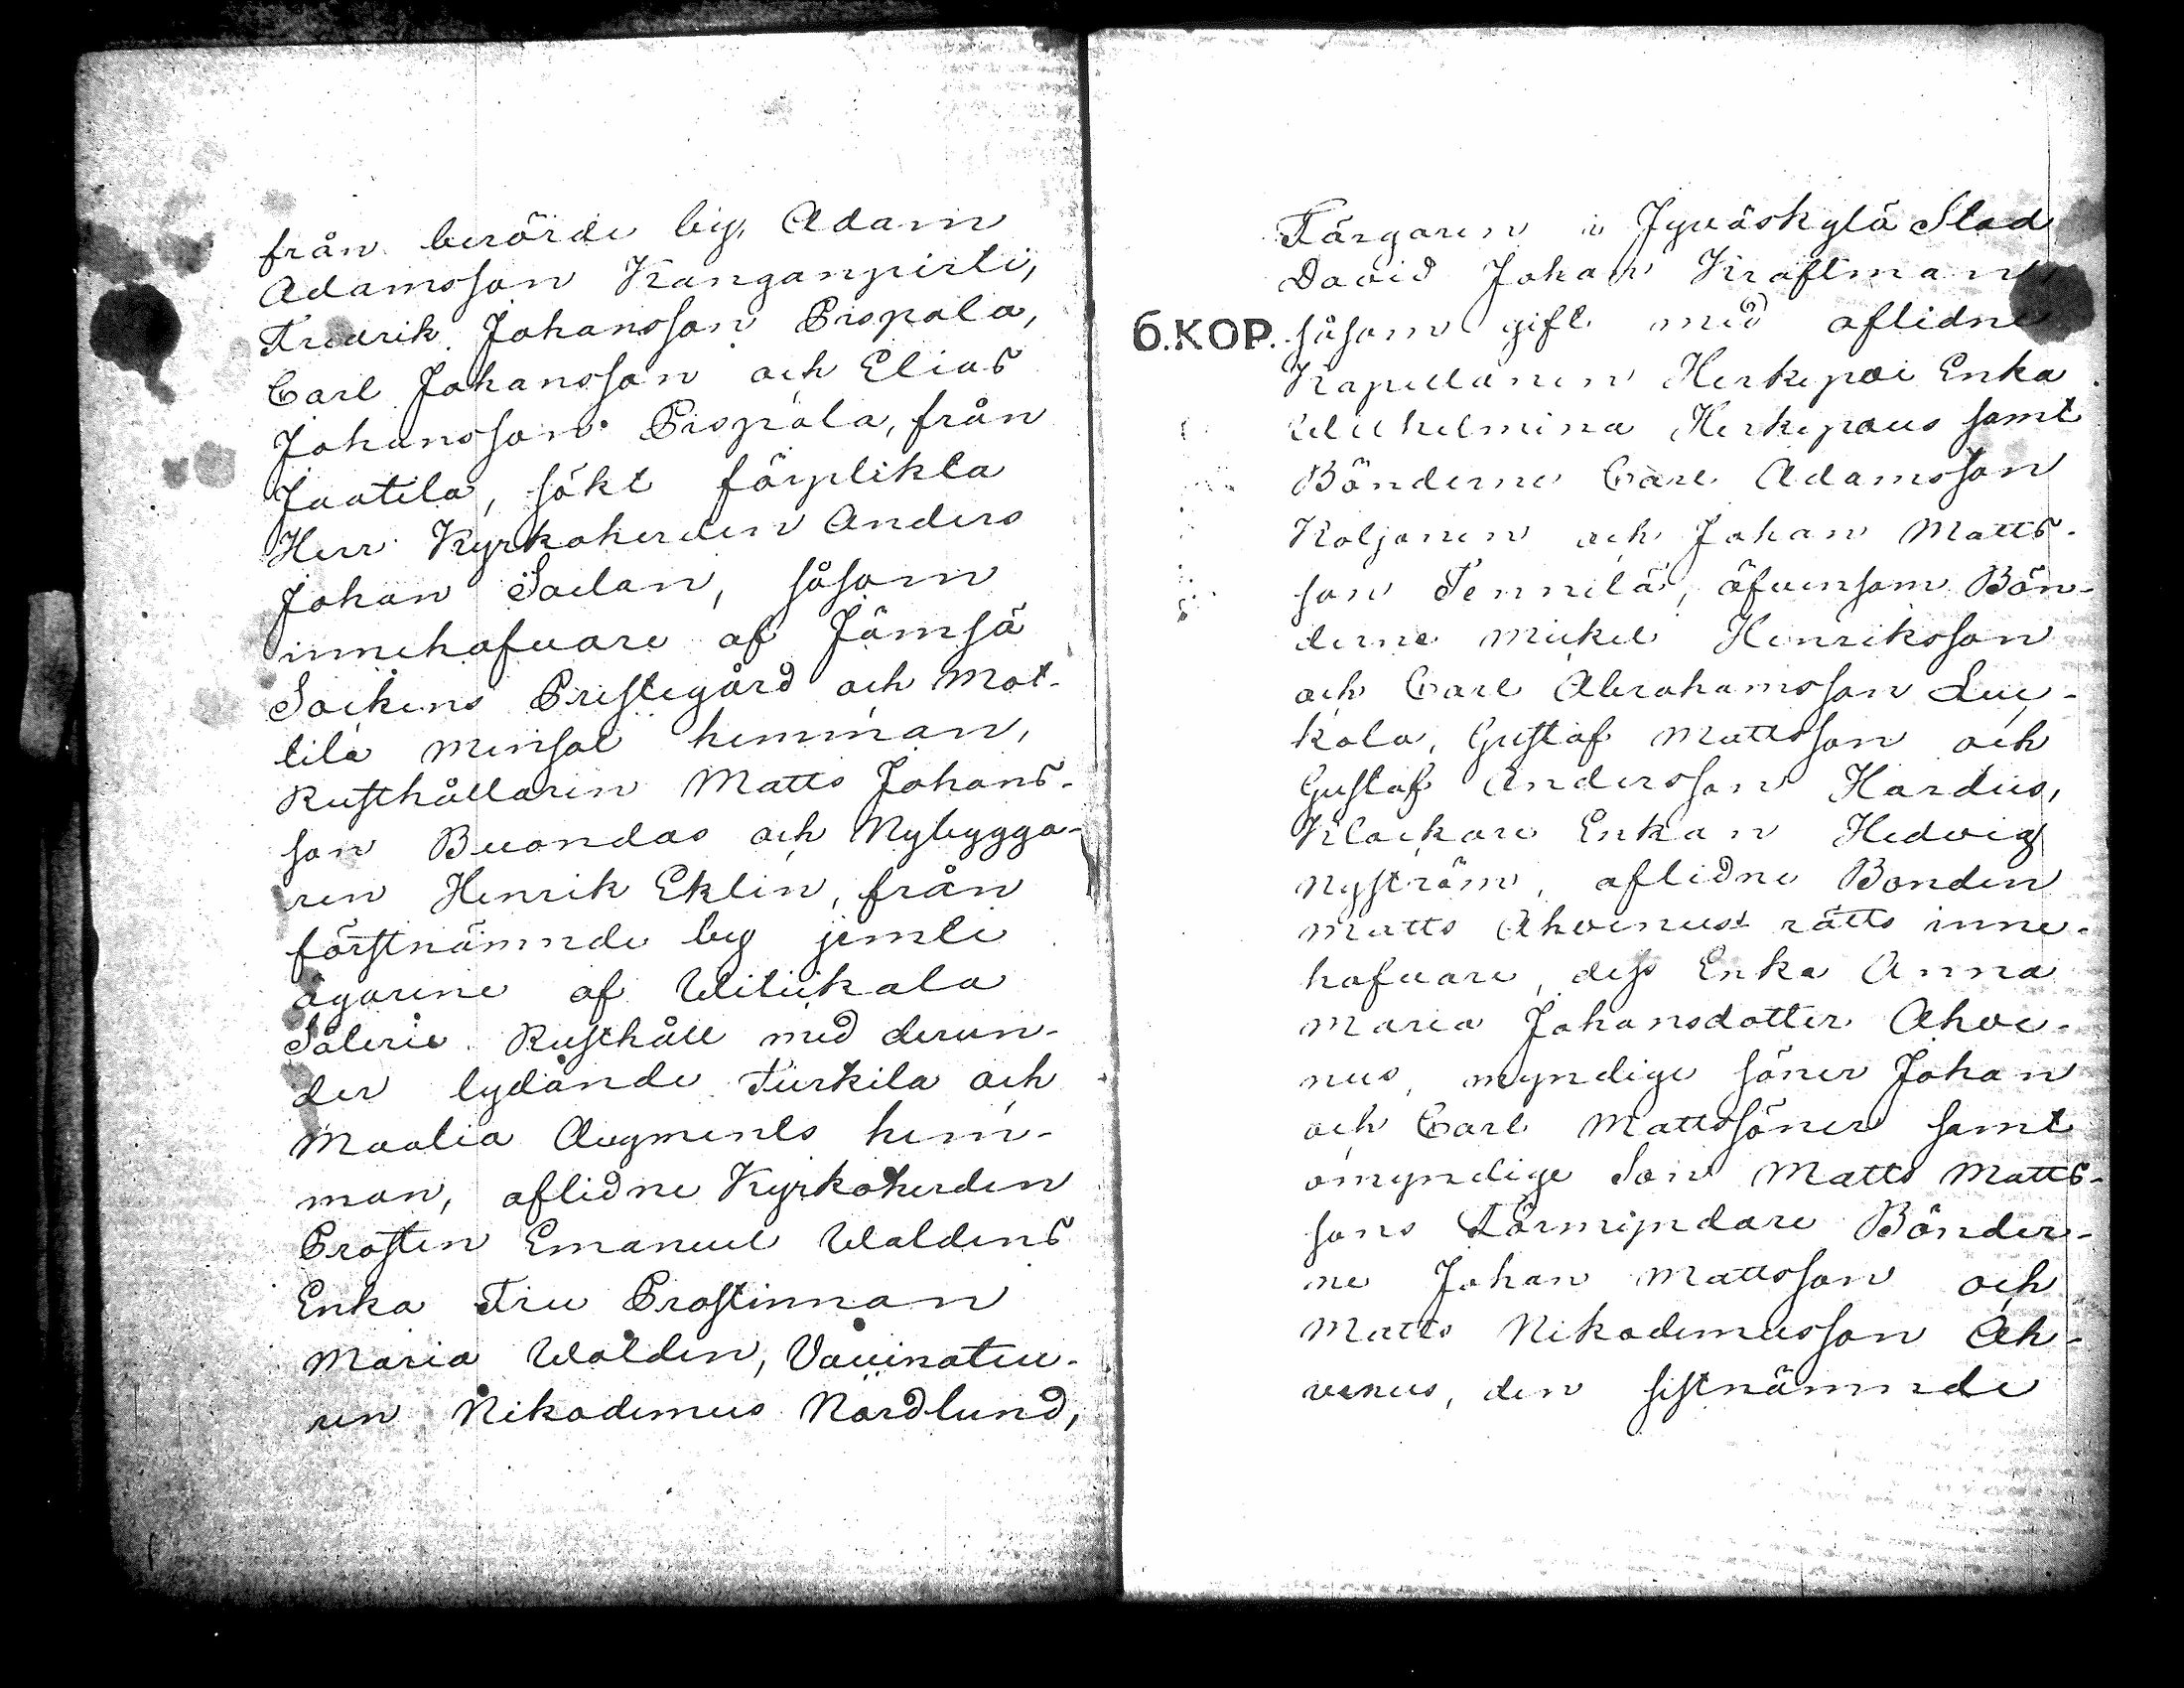 från berörde by, Adam
Adamsson Kanganpirti,
Fredrik Johansson Pispala,
Carl Johansson och Elias
Johansson Pispala, från
Jaatila, sökt förplikta
Herr Kyrkoherden Anders
Johan Sadan, såsom
innehafvare af Jämsä
Sockens Prestegård och Mat-
tila mensal hemman,
Rusthållaren Matts Johans-
son Buandas och Nybygga-
ren Henrik Eklin, från
förstnämnde by jemte
ägarene af Witikala
Säteri Rusthåll med derun-
der lydande Turkila och
Maalia Augments hem-
man, aflidne Kyrkoherden
Prosten Emanuel Waldens
Enka Fru Prostinnan
Maria Walden, Vaccinateu-
ren Nikodemus Nordlund,
Färgaren i Jyväskylä Stad
David Johan Kraftman
6.KOP. såsom gift med aflidne
Kapellanen Herkepæi Enka
Wilhelmina Herkepæus samt
Bönderne Carl Adamsson
Koljonen och Johan Matts-
son Tennilä, äfvensom Bön-
derne Mickel Henriksson
och Carl Abrahamsson Luu-
kola, Gustaf Mattsson och
Gustaf Andersson Hardus,
Klockare Enkan Hedvig
Nyström, aflidne Bonden
Matts Ahvenus rätts inne-
hafvare, dess Enka Anna
Maria Johansdotter Ahve-
nus, myndige söner Johan
och Carl Mattssöner samt
omyndige Son Matts Matts-
sons Förmyndare Bönder-
ne Johan Mattsson och
Matts Nikodemusson Ah-
venus, den sistnämnde